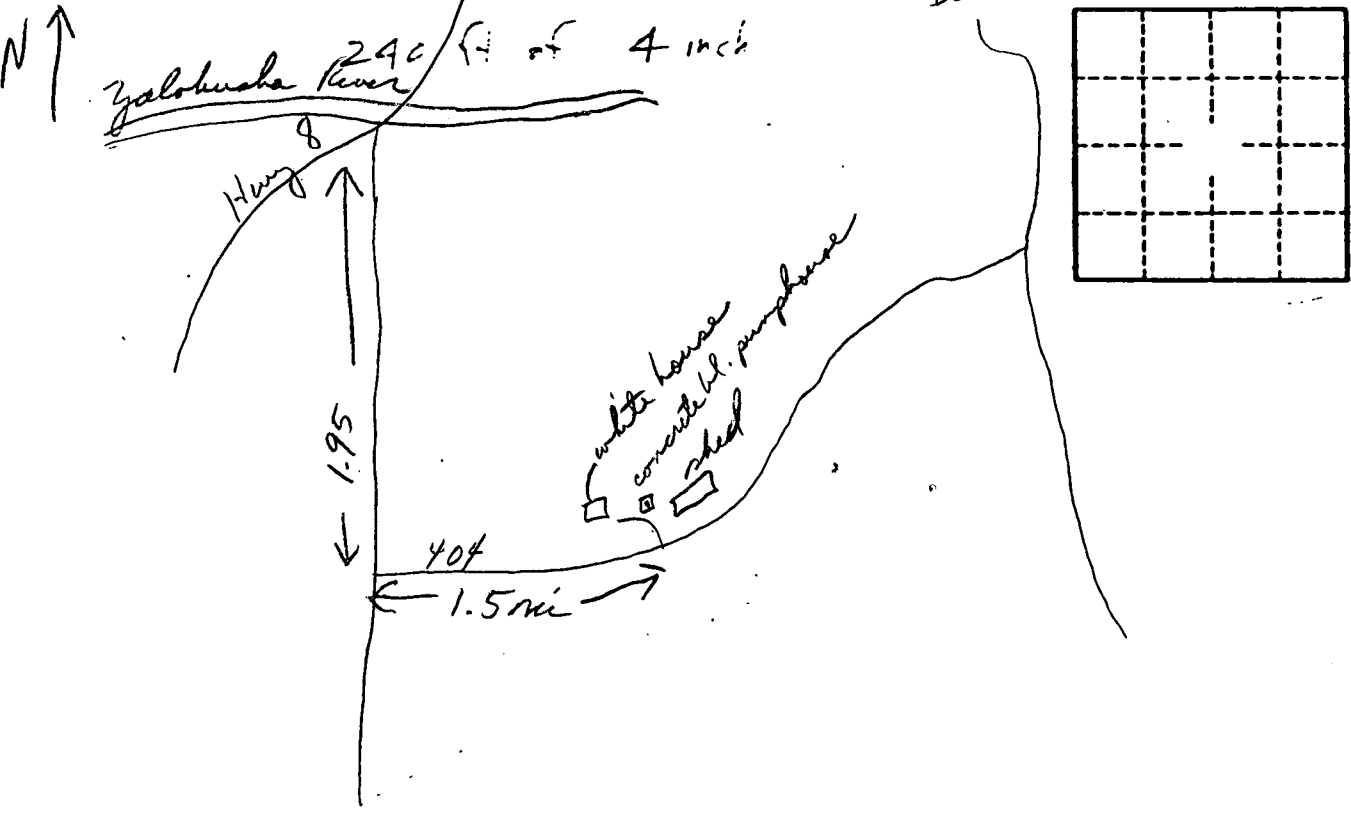 N
240 ft of 4 inch
Yalobusha River
Hwy 8
1.95
white house
concrete bl. pumphouse
shed
404
1.5 mi